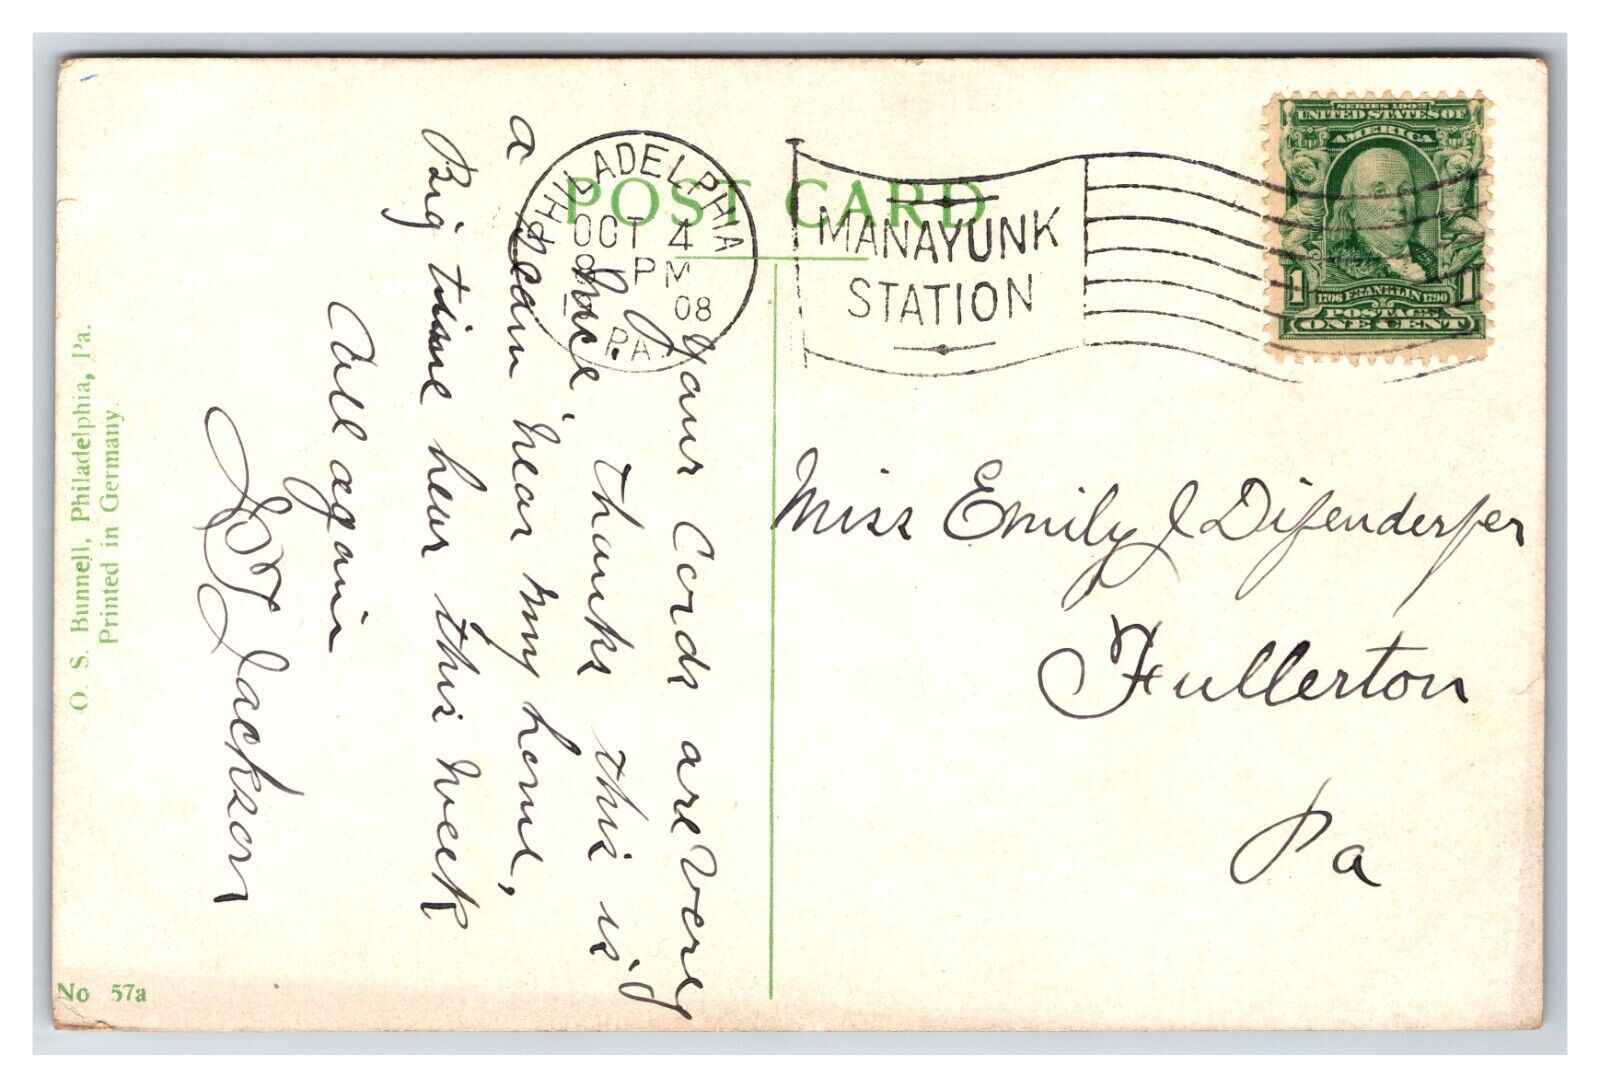 POST CARD
PHILADELPHIA
OCT 4
PM
08
PA
MANAYUNK
STATION
SERIES 1902
UNITED STATES OF
AMERICA
1 1
1706 FRANKLIN 1790
POSTAGE
ONE CENT
your Cards are Very
thanks this is
a near my home,
Big time hear this week
Call again
Jackson
Miss Emily J Difenderfer
Fullerton
Pa
O. S. Bunnell, Philadelphia, Pa.
Printed in Germany.
No 57a